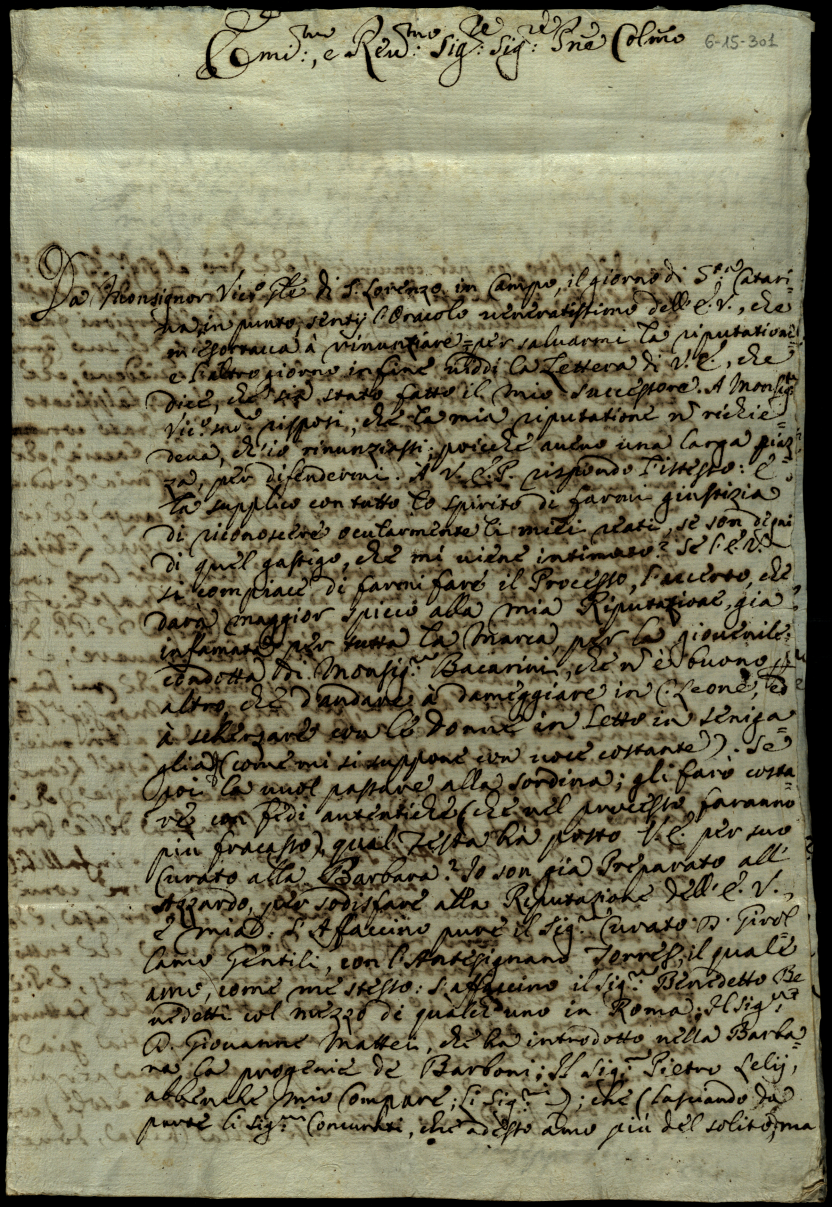 Emi:mo, e Reu:mo Sig:re Sig:re Pne Colmo
6-15-301
Da Monsignor Vico Gle di S. Lorenzo in Campo, il giorno di S.ta Catari-
na in punto, sentij l'Oracolo veneratissimo dell'E.V., che
m'esortava à rinunziare = per salvarmi la riputatione =
e l'altro giorno in fine viddi la Lettera di V.E., che
dice, che sia stato fatto il mio Successore. A Monsig.r
Vico sud.o risposi, che la mia riputatione n richie=
deva, ch'io rinunziassi: poiche avevo una larga piaz=
za, per difendermi. A V.E.P. rispondo l'istesso: e
la supplico con tutto lo spirito di farmi giustizia
di riconoscere ocularmente li miei reati, se son degni
di quel gastigo, che mi viene intimato? Se l'E.V.
si compiace di farmi fare il Processo, l'accerto, che
darà maggior spicco alla mia Riputazione, già
infamata per tutta la Marca, per la giovenile
condotta di Monsig.r Bacarini, che n è buono p
altro, che d'andare à dameggiare in C. Leone, ed
à scherzare con le Donne in Letto in Seniga=
glia (come mi si suppone con voce costante). Se
poi la vuol passare alla sordina; gli farò costa=
re con fedi autentiche (che nel processo faranno
più fracasso) qual Testa hà posto V.E. per suo
Curato alla Barbara? Io son già Preparato all'
, per sodisfare alla Riputazione dell'E.V.,
e mia. S'Affaccino pure il Sig.r Curato D. Girol
lamo Gentili, con l'Antesignano Torres, il quale
amo, come me stesso: s'affaccino il Sig.r Benedetto Be
nedetti col mezzo di qualch'uno in Roma; Il Sig.r
D. Giovanne Mattei, che ha introdotto nella Barba=
ra la progenie de Barboni; Il Sig.r Pietro Lelij,
abbenche mio Compare; li Sig.ri ; che (lasciando da
parte li Sig.ri Concurati, che adesso amo più del solito, ma